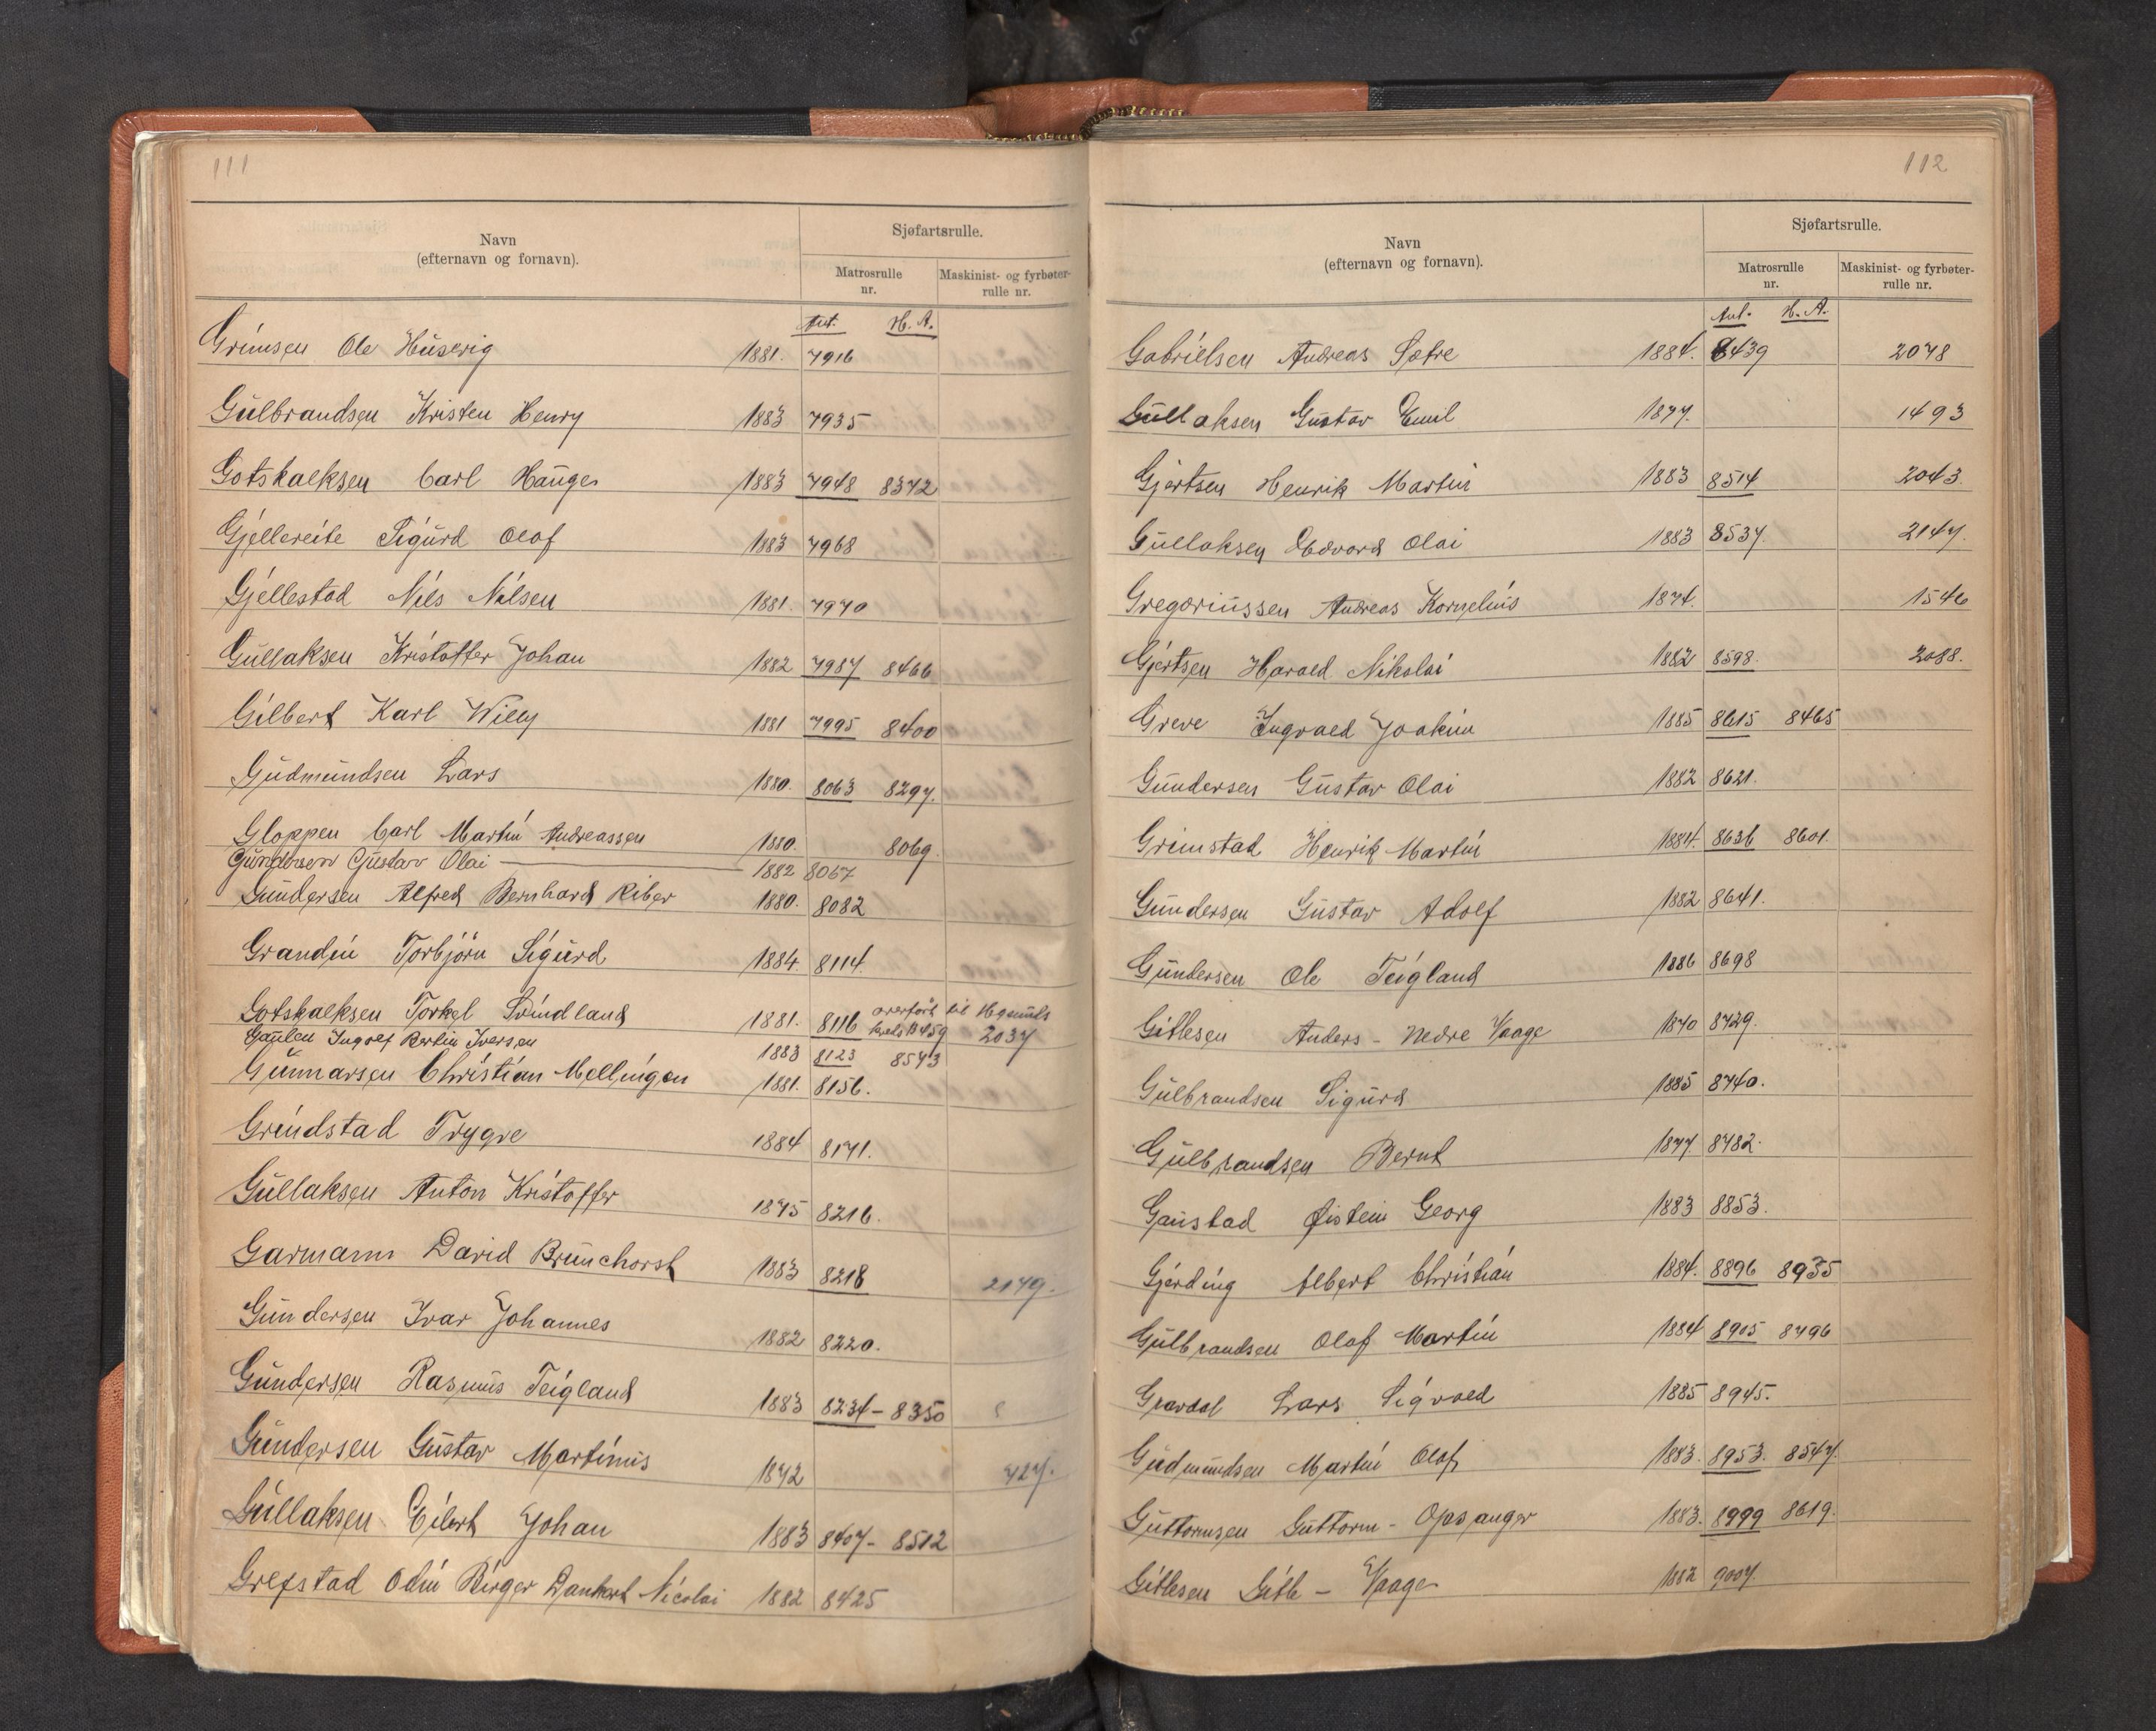 111
Navn
(efternavn og fornavn).
Sjøfartsrulle.
Matrosrulle
nr.
Maskinist- og fyrbøter-
rulle nr.
Ant. H. A.
Grimsen Ole Huservig 1881. 7916
Gulbrandsen Kristen Henry 1883 7935
Gotskalksen Carl Hauge 1883 7948 8372
Gjellereite Sigurd Olaf 1883 7968
Gjellestad Nils Nilsen 1881. 7970
Gullaksen Kristoffer Johan 1882 7987 8466
Gilbert Karl Willy 1881 7995 8400
Gudmundsen Lars 1880. 8063 8297.
Gloppen Carl Martin Andreassen 1880. 8069.
Gundersen Gustav Olai 1882 8067
Gundersen Alfred Bernhard Riber 1880. 8082
Grandin Torbjörn Sigurd 1884. 8114.
Gotskalksen Torkel Svindland 1881. 8116 overfört til 2037
Gaulen Ingolf Bertin Iversen 1883 8123 8543
Gunnarsen Christian Mellingen 1881. 8156.
Grindstad Trygve 1884 8171.
Gullaksen Anton Kristoffer 1875 8216.
Garmann David Brunchorst 1883 8218 2179.
Gundersen Ivar Johannes 1882 8220.
Gundersen Rasmus Teigland 1883 8234 - 8350
Gundersen Gustav Martinus 1872 727.
Gullaksen Eilert Johan 1883 8407 - 8512
Grefstad Odin Birger Dankert Nicolai 1882 8425
112
Navn
(efternavn og fornavn).
Sjøfartsrulle.
Matrosrulle
nr.
Maskinist- og fyrbøter-
rulle nr.
Ant. H. A.
Gabrielsen Andreas Sætre 1884. 8439 2078
Gullaksen Gustav Emil 1877. 1493
Gjertsen Henrik Martin 1883 8514 2043.
Gullaksen Edvard Olai 1883 8537. 2147.
Gregoriussen Andreas Kornelius 1874. 1546
Gjertsen Harald Nikolai 1882 8598. 2088.
Greve Ingvald Joakim 1885 8615 8465
Gundersen Gustav Olai 1882 8621.
Grimstad Henrik Martin 1884. 8636 8601.
Gundersen Gustav Adolf 1882 8641.
Gundersen Ole Teigland 1886 8698
Gitlesen Anders - Nedre Vaage 1870 8729.
Gulbrandsen Sigurd 1885 8740.
Gulbrandsen Bernt 1877. 8782.
Gaustad Øistein Georg 1883 8853.
Gjerding Albert Christian 1884. 8896 8935
Gulbrandsen Olaf Martin 1884 8905 8796
Gravdal Lars Sigvald 1885 8945.
Gudmundsen Martin Olaf 1883. 8953. 8547.
Guttormsen Guttorm - Opsanger 1883. 8999 8619.
Gitlesen Gitle - Vaage 1882 9007.